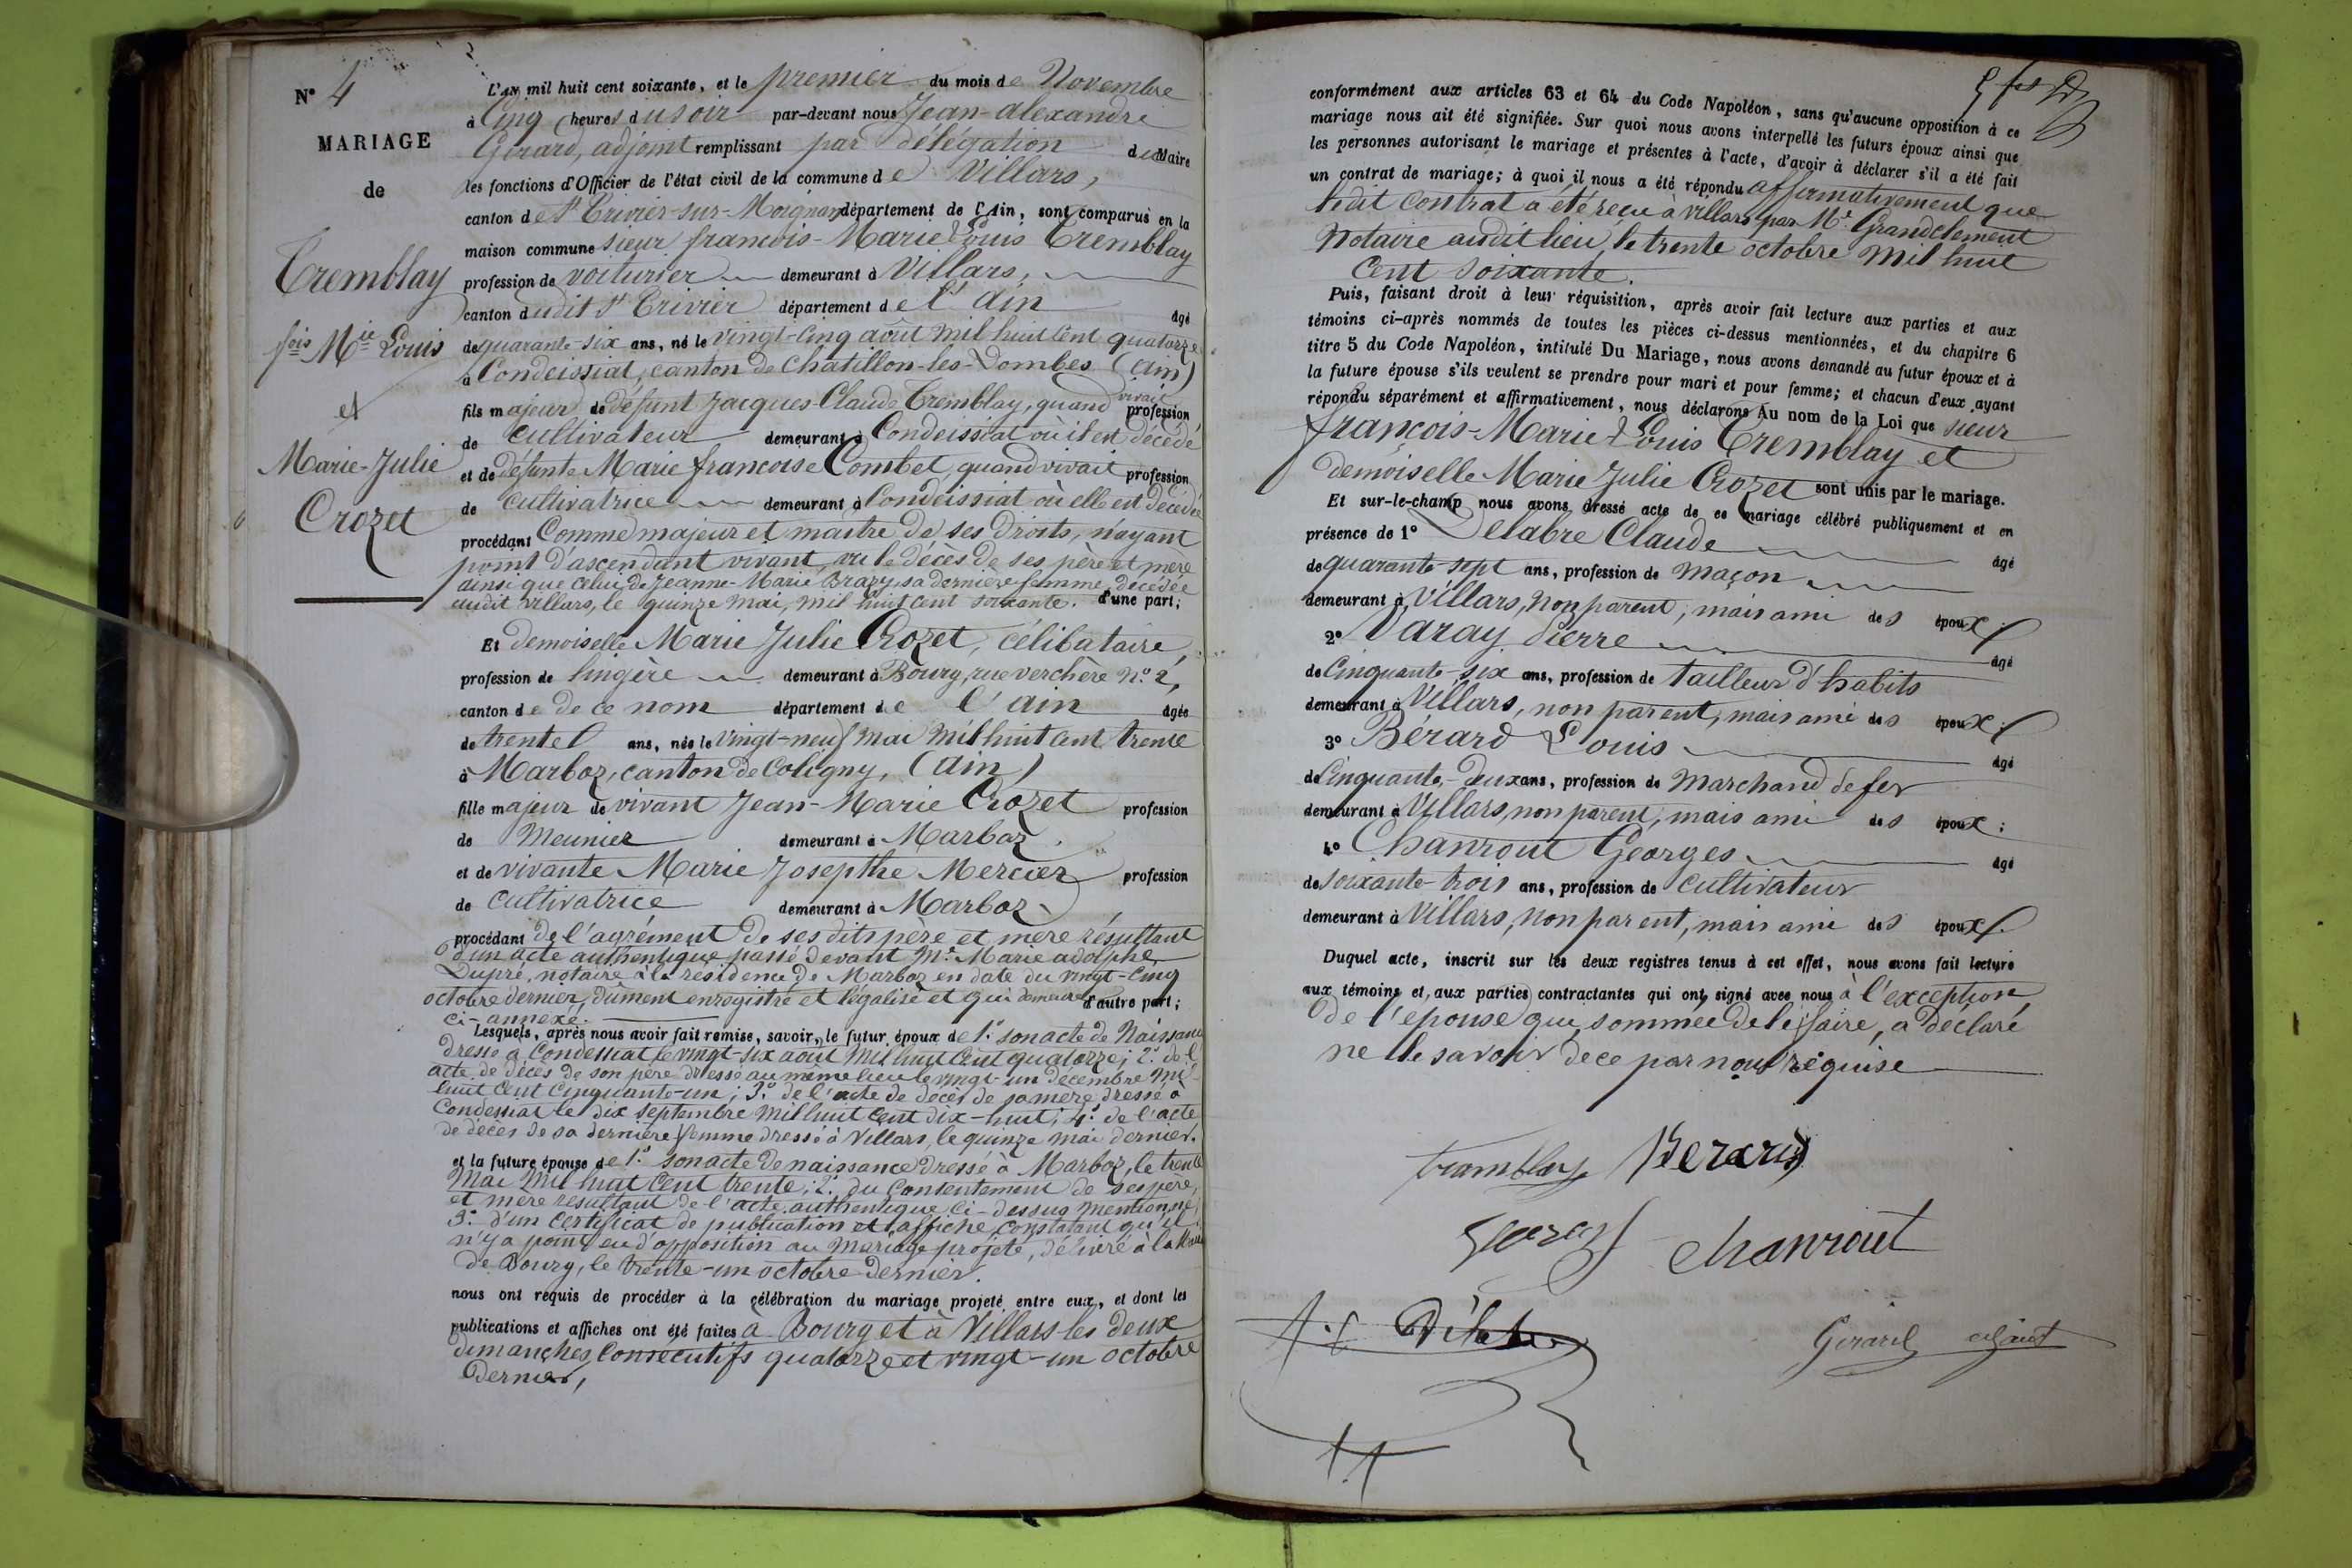 N° 4
MARIAGE
de
Tremblay
fois Mie Louis
et
Marie-Julie
Crozet
L'an mil huit cent soixante, et le premier du mois de Novembre
à Cinq heures du soir par-devant nous Jean-Alexandre
Gérard, adjoint remplissant par délégation du Maire
les fonctions d'Officier de l'état civil de la commune de Villars,
canton de St Trivier-sur-Moignans département de l'Ain, sont comparus en la
maison commune sieur françois-Marie Louis Tremblay
profession de voiturier demeurant à Villars,
canton dudit St Trivier département de l'ain âgé
de quarante-six ans, né le vingt-cinq août mil huit cent quatorze
à Condeissiat, canton de Chatillon-les-Dombes (ain)
fils majeur de défunt Jacques-Claude Tremblay, quand vivait profession
de cultivateur demeurant à Condeissiat où il est décédé
et de défunte Marie françoise Combet, quand vivait profession
de cultivatrice demeurant à Condeissiat où elle est décédée
procédant Comme majeur et maître de ses droits, n'ayant
point d'ascendant vivant, vu le décès de ses père et mère
ainsi que celui de Jeanne-Marie Brazy, sa dernière femme, décédée
audit villars, le quinze mai, mil huit cent soixante. d'une part;
Et demoiselle Marie Julie Crozet, célibataire,
profession de lingère demeurant à Bourg, rue verchère N° 2,
canton de de ce nom département de l'ain âgée
de trente ans, née le vingt-neuf mai mil huit cent trente
à Marboz, canton de Coligny, (ain)
fille majeur de vivant Jean-Marie Crozet profession
de Meunier demeurant à Marboz.
et de vivante Marie Josepthe Mercier profession
de cultivatrice demeurant à Marboz
procédant de l'agrément de ses dits père et mère résultant
d'un acte authentique passé devant Me Marie adolphe
Dupré, notaire à la résidence de Marboz en date du vingt-cinq
octobre dernier, dûment enregistré et légalisé et qui demeure d'autre part;
ci-annexé.
Lesquels, après nous avoir fait remise, savoir, le futur époux de 1° son acte de Naissance
dressé à Condeissiat le vingt-six août mil huit cent quatorze; 2° de l'
acte de décès de son père dressé au même lieu le vingt-un décembre mil
huit cent cinquante-un; 3° de l'acte de décès de sa mère dressé à
Condeissiat le dix septembre mil huit cent dix-huit; 4° de l'acte
de décès de sa dernière femme dressé à Villars, le quinze mai dernier.
et la future épouse de 1° son acte de naissance dressé à Marboz, le trente
mai mil huit cent trente; 2° du consentement de ses père,
et mère résultant de l'acte authentique ci-dessus mentionné;
3° d'un certificat de publication et affiche constatant qu'il
n'y a point eu d'opposition au mariage projeté, délivré à la Mairie
de Bourg, le trente-un octobre dernier.
nous ont requis de procéder à la célébration du mariage projeté entre eux, et dont les
publications et affiches ont été faites à Bourg et à Villars les deux
dimanches consécutifs quatorze et vingt-un octobre
dernier,
conformément aux articles 63 et 64 du Code Napoléon, sans qu'aucune opposition à ce
mariage nous ait été signifiée. Sur quoi nous avons interpellé les futurs époux ainsi que
les personnes autorisant le mariage et présentes à l'acte, d'avoir à déclarer s'il a été fait
un contrat de mariage; à quoi il nous a été répondu affirmativement que
ledit contrat a été reçu à villars par Me Grandclement
Notaire audit lieu, le trente octobre mil huit
cent soixante.
Puis, faisant droit à leur réquisition, après avoir fait lecture aux parties et aux
témoins ci-après nommés de toutes les pièces ci-dessus mentionnées, et du chapitre 6
titre 5 du Code Napoléon, intitulé Du Mariage, nous avons demandé au futur époux et à
la future épouse s'ils veulent se prendre pour mari et pour femme; et chacun d'eux ayant
répondu séparément et affirmativement, nous déclarons Au nom de la Loi que sieur
françois-Marie Louis Tremblay et
demoiselle Marie Julie Crozet sont unis par le mariage.
Et sur-le-champ nous avons dressé acte de ce mariage célébré publiquement et en
présence de 1° Delabre Claude âgé
de quarante-sept ans, profession de maçon
demeurant à Villars, non parent, mais ami des époux;
2° Varay Pierre âgé
de cinquante-six ans, profession de tailleur d'habits
demeurant à Villars, non parent, mais ami des époux;
3° Bérard Louis âgé
de Cinquante-deux ans, profession de marchand de fer
demeurant à Villars, non parent, mais ami des époux;
4° Chanrout Georges âgé
de soixante-trois ans, profession de cultivateur
demeurant à Villars, non parent, mais ami des époux.
Duquel acte, inscrit sur les deux registres tenus à cet effet, nous avons fait lecture
aux témoins et aux parties contractantes qui ont signé avec nous à l'exception
de l'épouse qui, sommée de le faire, a déclaré
ne le savoir de ce par nous réquise
tramblay Berard
Varay chanrout
Delabre Gerard adjoint